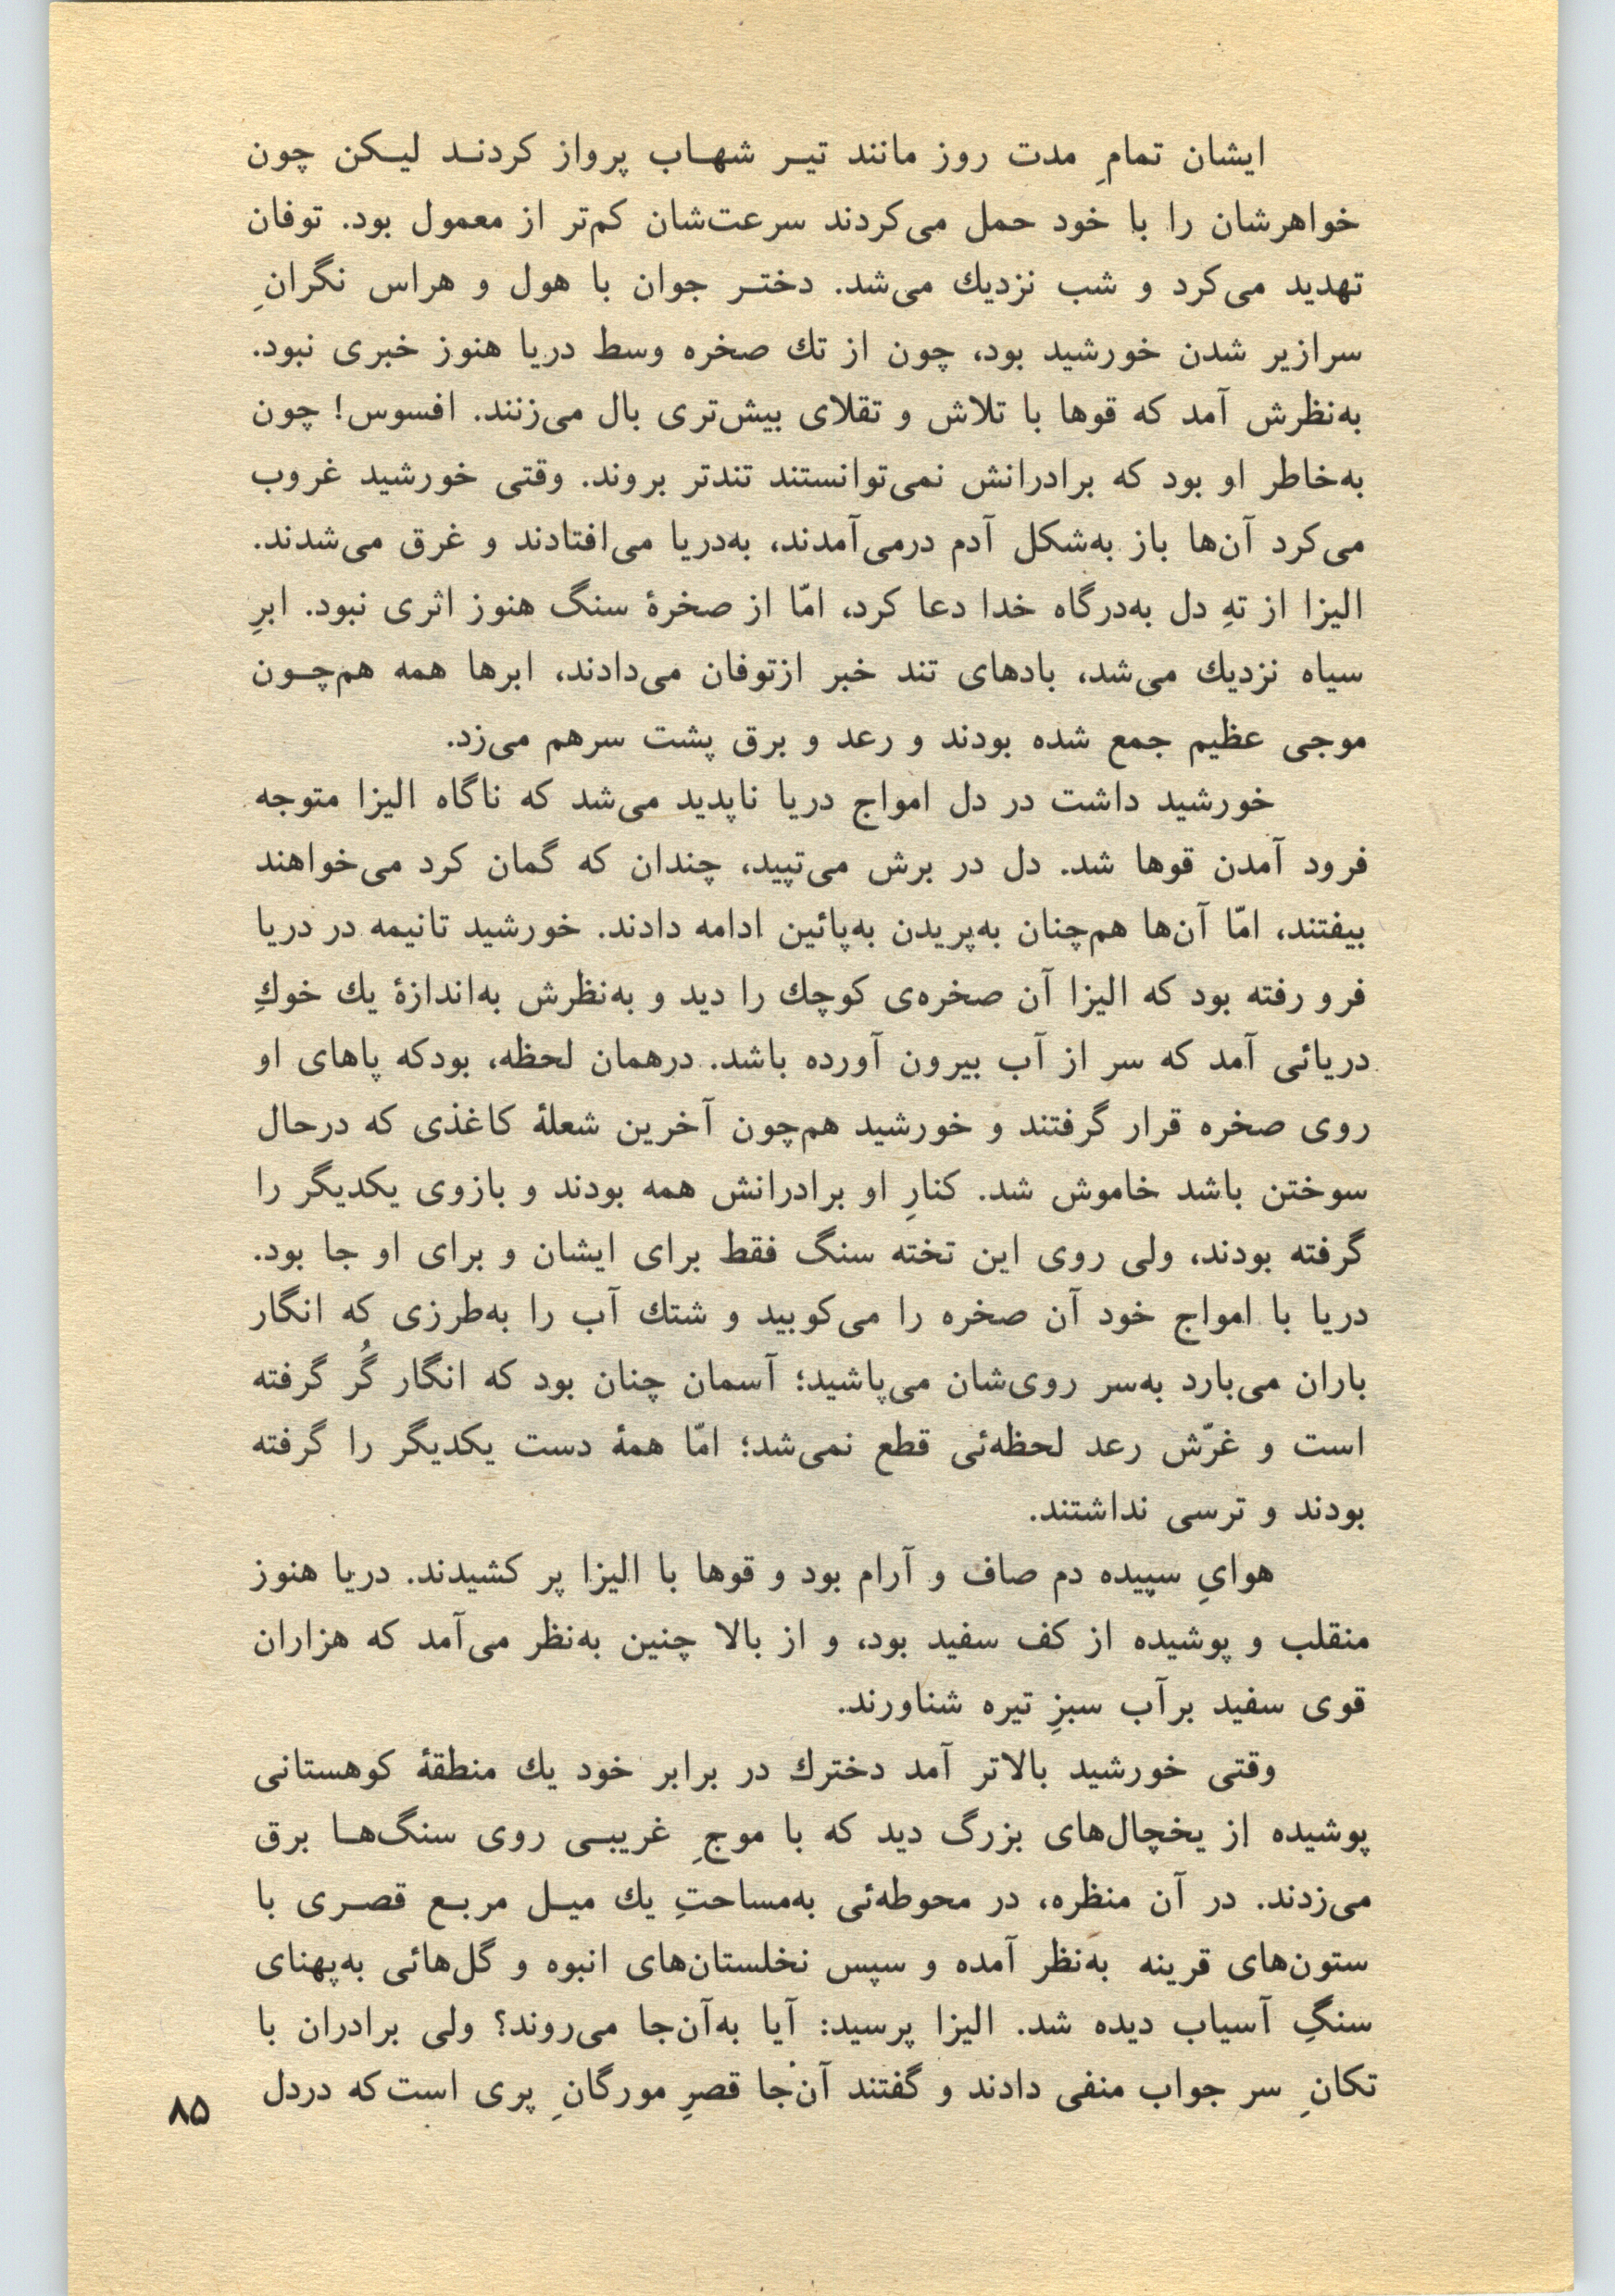 ایشان تمامِ مدت روز مانند تیر شهاب پرواز کردند لیکن چون
خواهرشان را با خود حمل می‌کردند سرعت‌شان کم‌تر از معمول بود. توفان
تهدید می‌کرد و شب نزدیك می‌شد. دختر جوان با هول و هراس نگرانِ
سرازیر شدن خورشید بود، چون از تك صخره وسط دریا هنوز خبری نبود.
به‌نظرش آمد که قوها با تلاش و تقلای بیش‌تری بال می‌زنند. افسوس! چون
به‌خاطر او بود که برادرانش نمی‌توانستند تندتر بروند. وقتی خورشید غروب
می‌کرد آن‌ها باز به‌شکل آدم درمی‌آمدند، به‌دریا می‌افتادند و غرق می‌شدند.
الیزا از تهِ دل به‌درگاه خدا دعا کرد، امّا از صخرهٔ سنگ هنوز اثری نبود. ابرِ
سیاه نزدیك می‌شد، بادهای تند خبر ازتوفان می‌دادند، ابرها همه هم‌چون
موجی عظیم جمع شده بودند و رعد و برق پشت سرهم می‌زد.
خورشید داشت در دل امواج دریا ناپدید می‌شد که ناگاه الیزا متوجه
فرود آمدن قوها شد. دل در برش می‌تپید، چندان که گمان کرد می‌خواهند
بیفتند، امّا آن‌ها هم‌چنان به‌پریدن به‌پائین ادامه دادند. خورشید تانیمه در دریا
فرو رفته بود که الیزا آن صخره‌ی کوچك را دید و به‌نظرش به‌اندازهٔ یك خوكِ
دریائی آمد که سر از آب بیرون آورده باشد. درهمان لحظه، بودکه پاهای او
روی صخره قرار گرفتند و خورشید هم‌چون آخرین شعلهٔ کاغذی که درحال
سوختن باشد خاموش شد. کنارِ او برادرانش همه بودند و بازوی یکدیگر را
گرفته بودند، ولی روی این تخته سنگ فقط برای ایشان و برای او جا بود.
دریا با امواج خود آن صخره را می‌کوبید و شتك آب را به‌طرزی که انگار
باران می‌بارد به‌سر روی‌شان می‌پاشید؛ آسمان چنان بود که انگار گُر گرفته
است و غرّش رعد لحظه‌ئی قطع نمی‌شد؛ امّا همهٔ دست یکدیگر را گرفته
بودند و ترسی نداشتند.
هوایِ سپیده دم صاف و آرام بود و قوها با الیزا پر کشیدند. دریا هنوز
منقلب و پوشیده از کف سفید بود، و از بالا چنین به‌نظر می‌آمد که هزاران
قوی سفید برآب سبزِ تیره شناورند.
وقتی خورشید بالاتر آمد دخترك در برابر خود یك منطقهٔ کوهستانی
پوشیده از یخچال‌های بزرگ دید که با موجِ غریبی روی سنگ‌ها برق
می‌زدند. در آن منظره، در محوطه‌ئی به‌مساحتِ یك میل مربع قصری با
ستون‌های قرینه به‌نظر آمده و سپس نخلستان‌های انبوه و گل‌هائی به‌پهنای
سنگِ آسیاب دیده شد. الیزا پرسید: آیا به‌آن‌جا می‌روند؟ ولی برادران با
تکانِ سر جواب منفی دادند و گفتند آن‌جا قصرِ مورگانِ پری است که دردل
۸۵